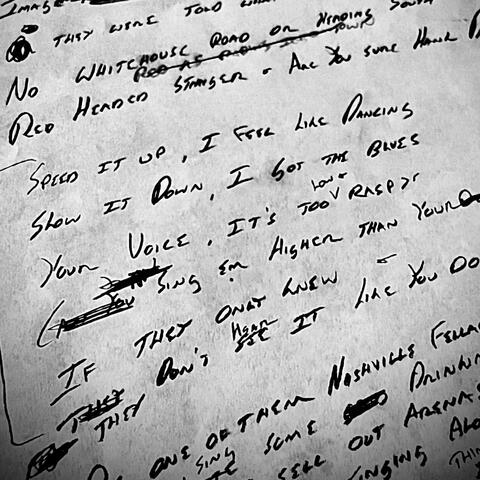 IMAGE
THEY WERE TOLD WHAT
NO WHITEHOUSE ROAD OR HEADING SOUTH
RED HEADED STRANGER - ARE YOU SURE HANK
SPEED IT UP, I FEEL LIKE DANCING
SLOW IT DOWN, I GOT THE BLUES
YOUR VOICE, IT'S TOO LOW & RASPY
( YOU SING EM HIGHER THAN YOUR
IF THEY ONLY KNEW
THEY DON'T HEAR IT LIKE YOU DO
ONE OF THEM NASHVILLE FELLA
SING SOME DRINKIN
SELL OUT ARENAS
SINGING ALO
THIN